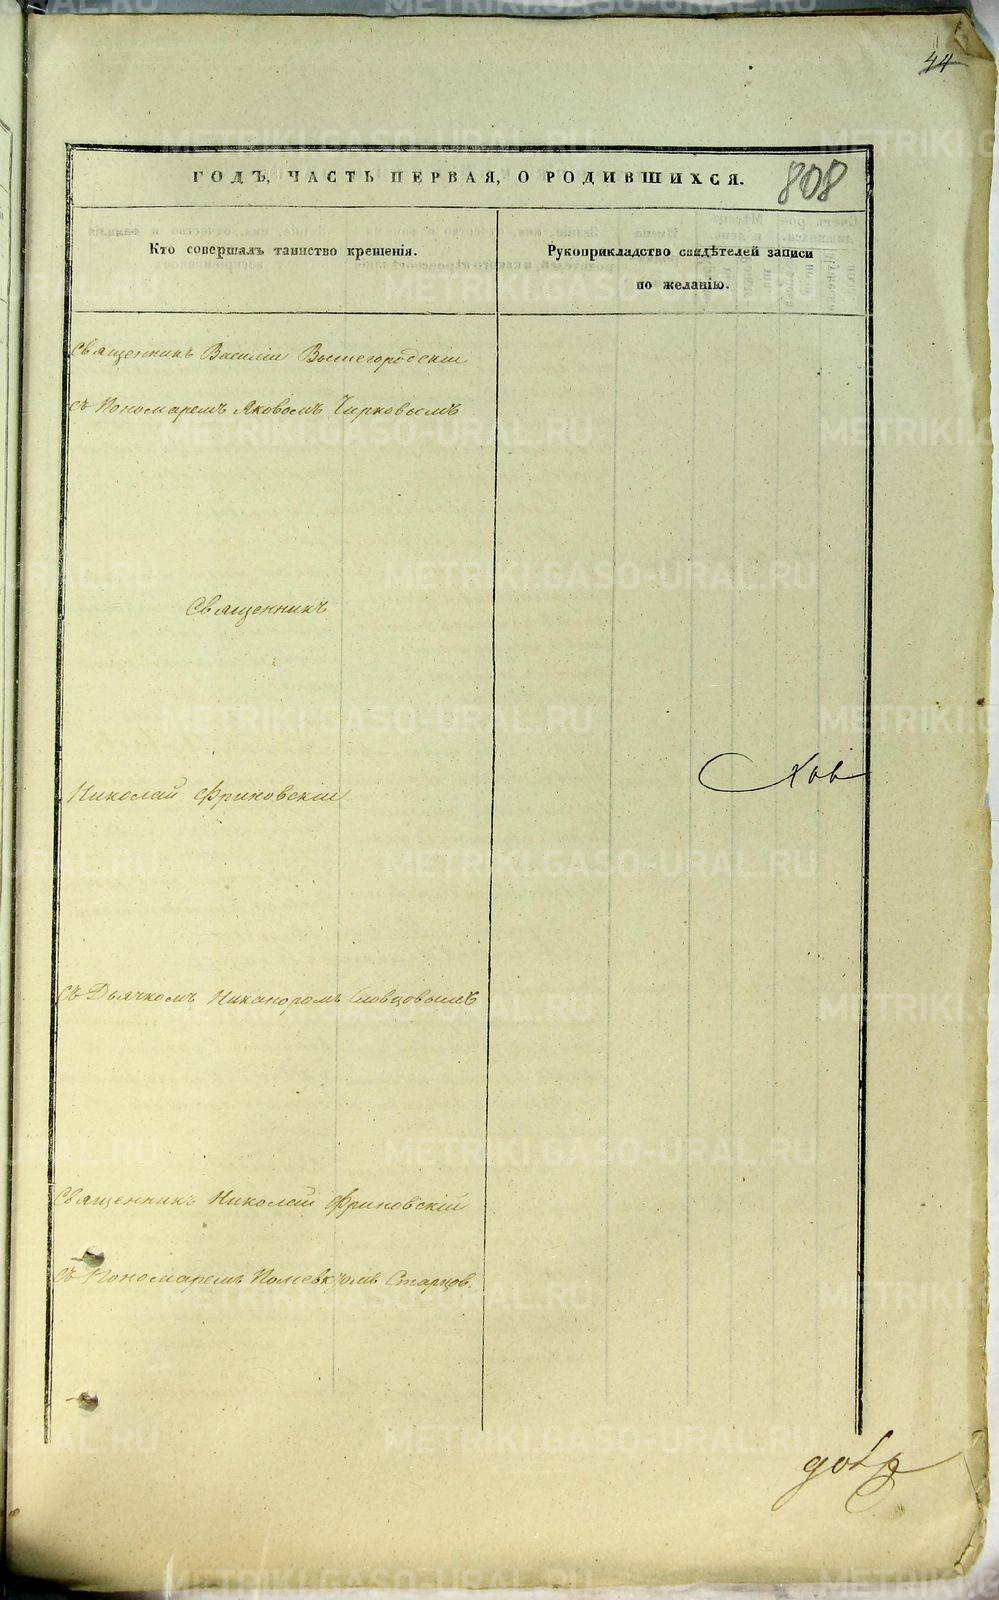 44
ГОДЪ, ЧАСТЬ ПЕРВАЯ, О РОДИВШИХСЯ.
808
Кто совершалъ таинство крещенія.
Рукоприкладство свидѣтелей записи
по желанію.
Священникъ Василіи Вышегородскіи
съ Пономаремъ Яковомъ Чирковымъ
Священникъ
Николай Фриновскіи
Съ Дьячкомъ Никаноромъ Словцовымъ
Священникъ Николай Фриновскій
Съ Пономаремъ Старцов.
METRIKI.GASO-URAL.RU